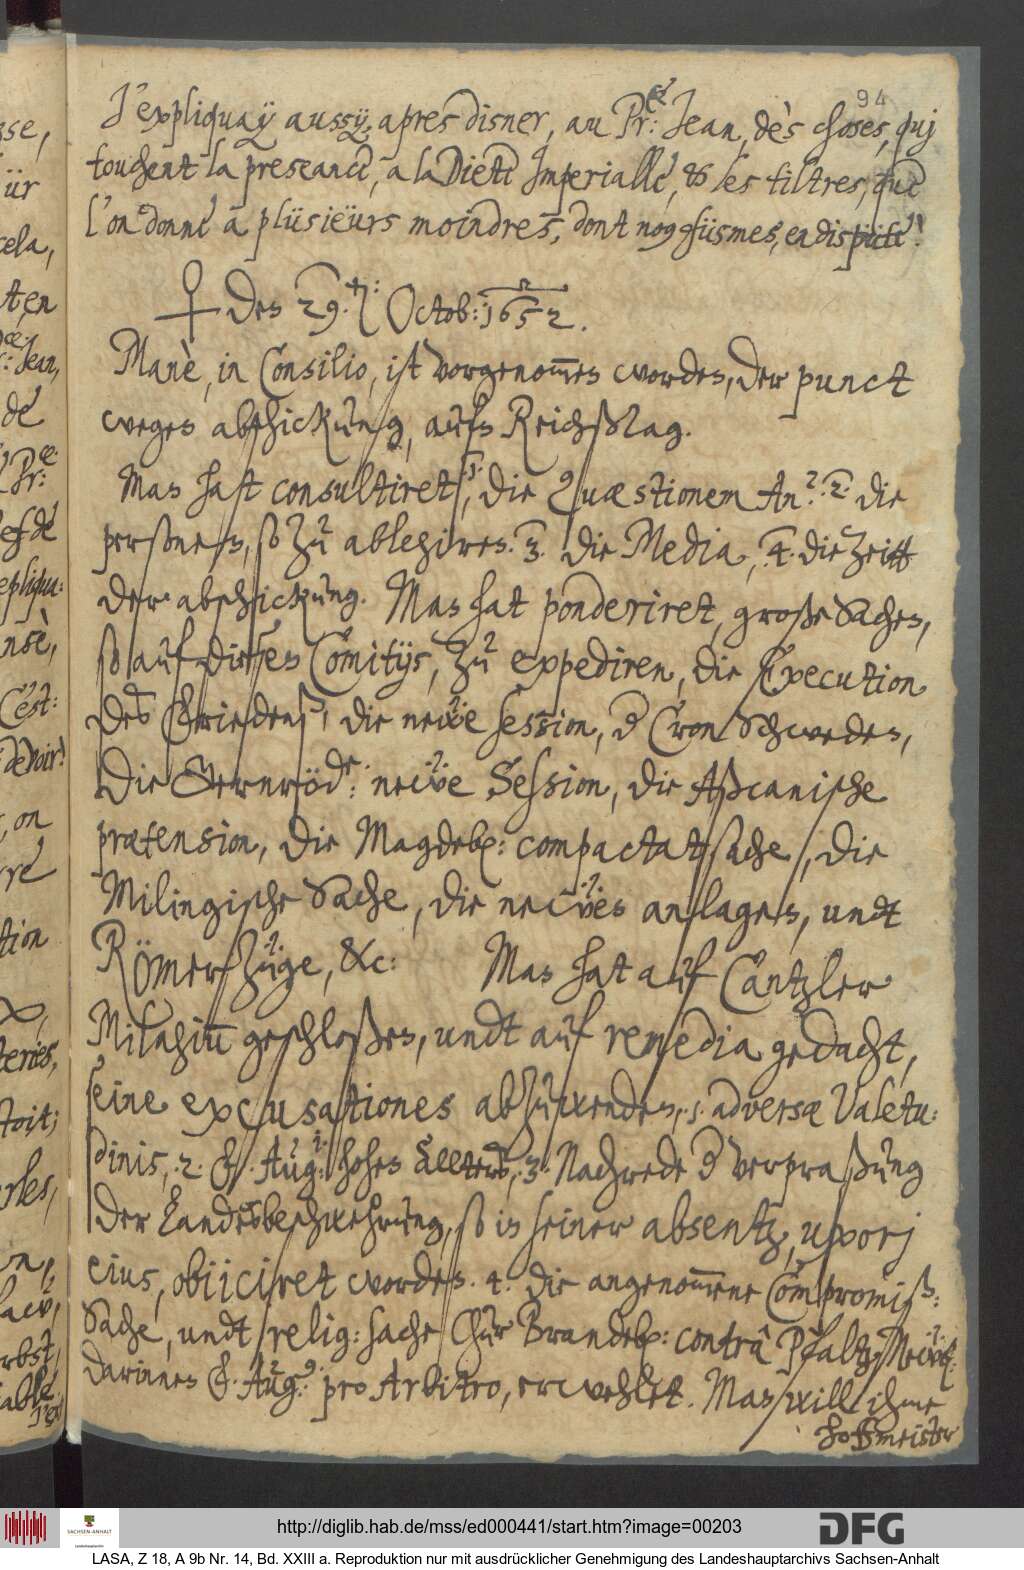 94
J'expliquay aussy, apres disner, au Pr: ce Jean, dès choses, quj
touchent la preseance, a la Diete Imperialle, & les tiltres, que
l'on donne a plüsieürs moindres, dont noüs füsmes, en dispüte!
♀ den 29. Octob: 1652.
Manè, in Consilio, ist vorgenom̅en worden, der punct
wegen abschickung, aufn Reichßtag.
Man hat consultiret, 1. die Quæstionem An? 2. die
persohnen, so zu ablegiren. 3. die Media, 4. die Zeitt
der abschickung. Man hat ponderiret, große Sachen,
so auf diesen Comitijs, zu expediren, die Execution
des Friedens, die newe session, d Cron Schweden,
die Gernröd: newe Session, die Aßcanische
prætension, die Magdeb: compactat sache, die
Milingische Sache, die newen anlagen, undt
Römerzüge, &c: Man hat auf Cantzler
Milagium geschloßen, undt auf remedia gedacht,
seine excusationes abzuwenden, 1. adversæ Valetu:
dinis, 2. F. Aug: hohen Alters, 3. Nachrede d verpraßung
der Landesbeschwehrung, so in seiner absentz, uxorj
eius, obijciret worden. 4. die angenom̅ene Compromiß:
Sache, undt relig: sache Chur Brandeb: contrâ Pfaltz Neub:
darinnen F. Aug: pro Arbitro, erwehlet. Man will ihme
hoffmeister
ür
cela,
Jean,
de
Pr:
tion
on
toit;
http://diglib.hab.de/mss/ed000441/start.htm?image=00203
SACHSEN-ANHALT
DFG
LASA, Z 18, A 9b Nr. 14, Bd. XXIII a. Reproduktion nur mit ausdrücklicher Genehmigung des Landeshauptarchivs Sachsen-Anhalt